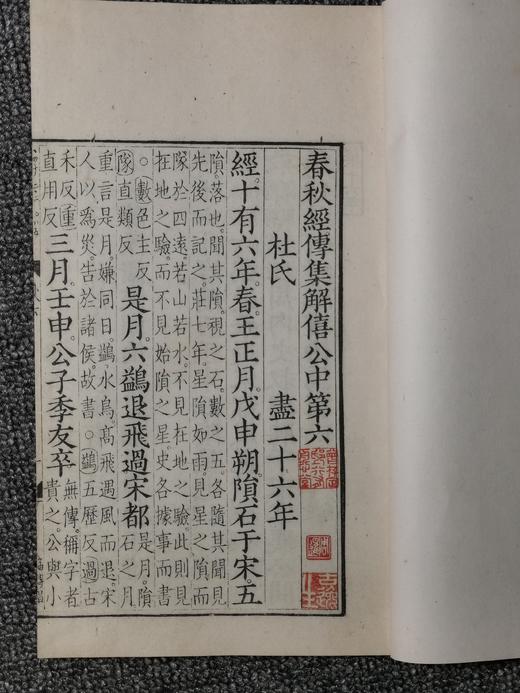 春秋經傳集解僖公中第六
杜氏 盡二十六年
經。十有六年。春。王正月。戊申朔。隕石于宋。五
隕。落也。聞其隕。視之石。數之五。各隨其聞見
先後而記之。莊七年。星隕如雨。見星之隕而
隊於四遠。若山若水。不見在地之驗。此則見
在地之驗。而不見始隕之星。史各據事而書
。數色主反
隊直類反
是月。六鷁退飛過宋都
是月。隕
石之月
重言是月。嫌同日。鷁水鳥。高飛遇風而退。宋
人以爲災。告於諸侯。故書。鷁五歷反過古
禾反重
直用反
三月。壬申。公子季友卒
無傳。稱字者
貴之。公與小